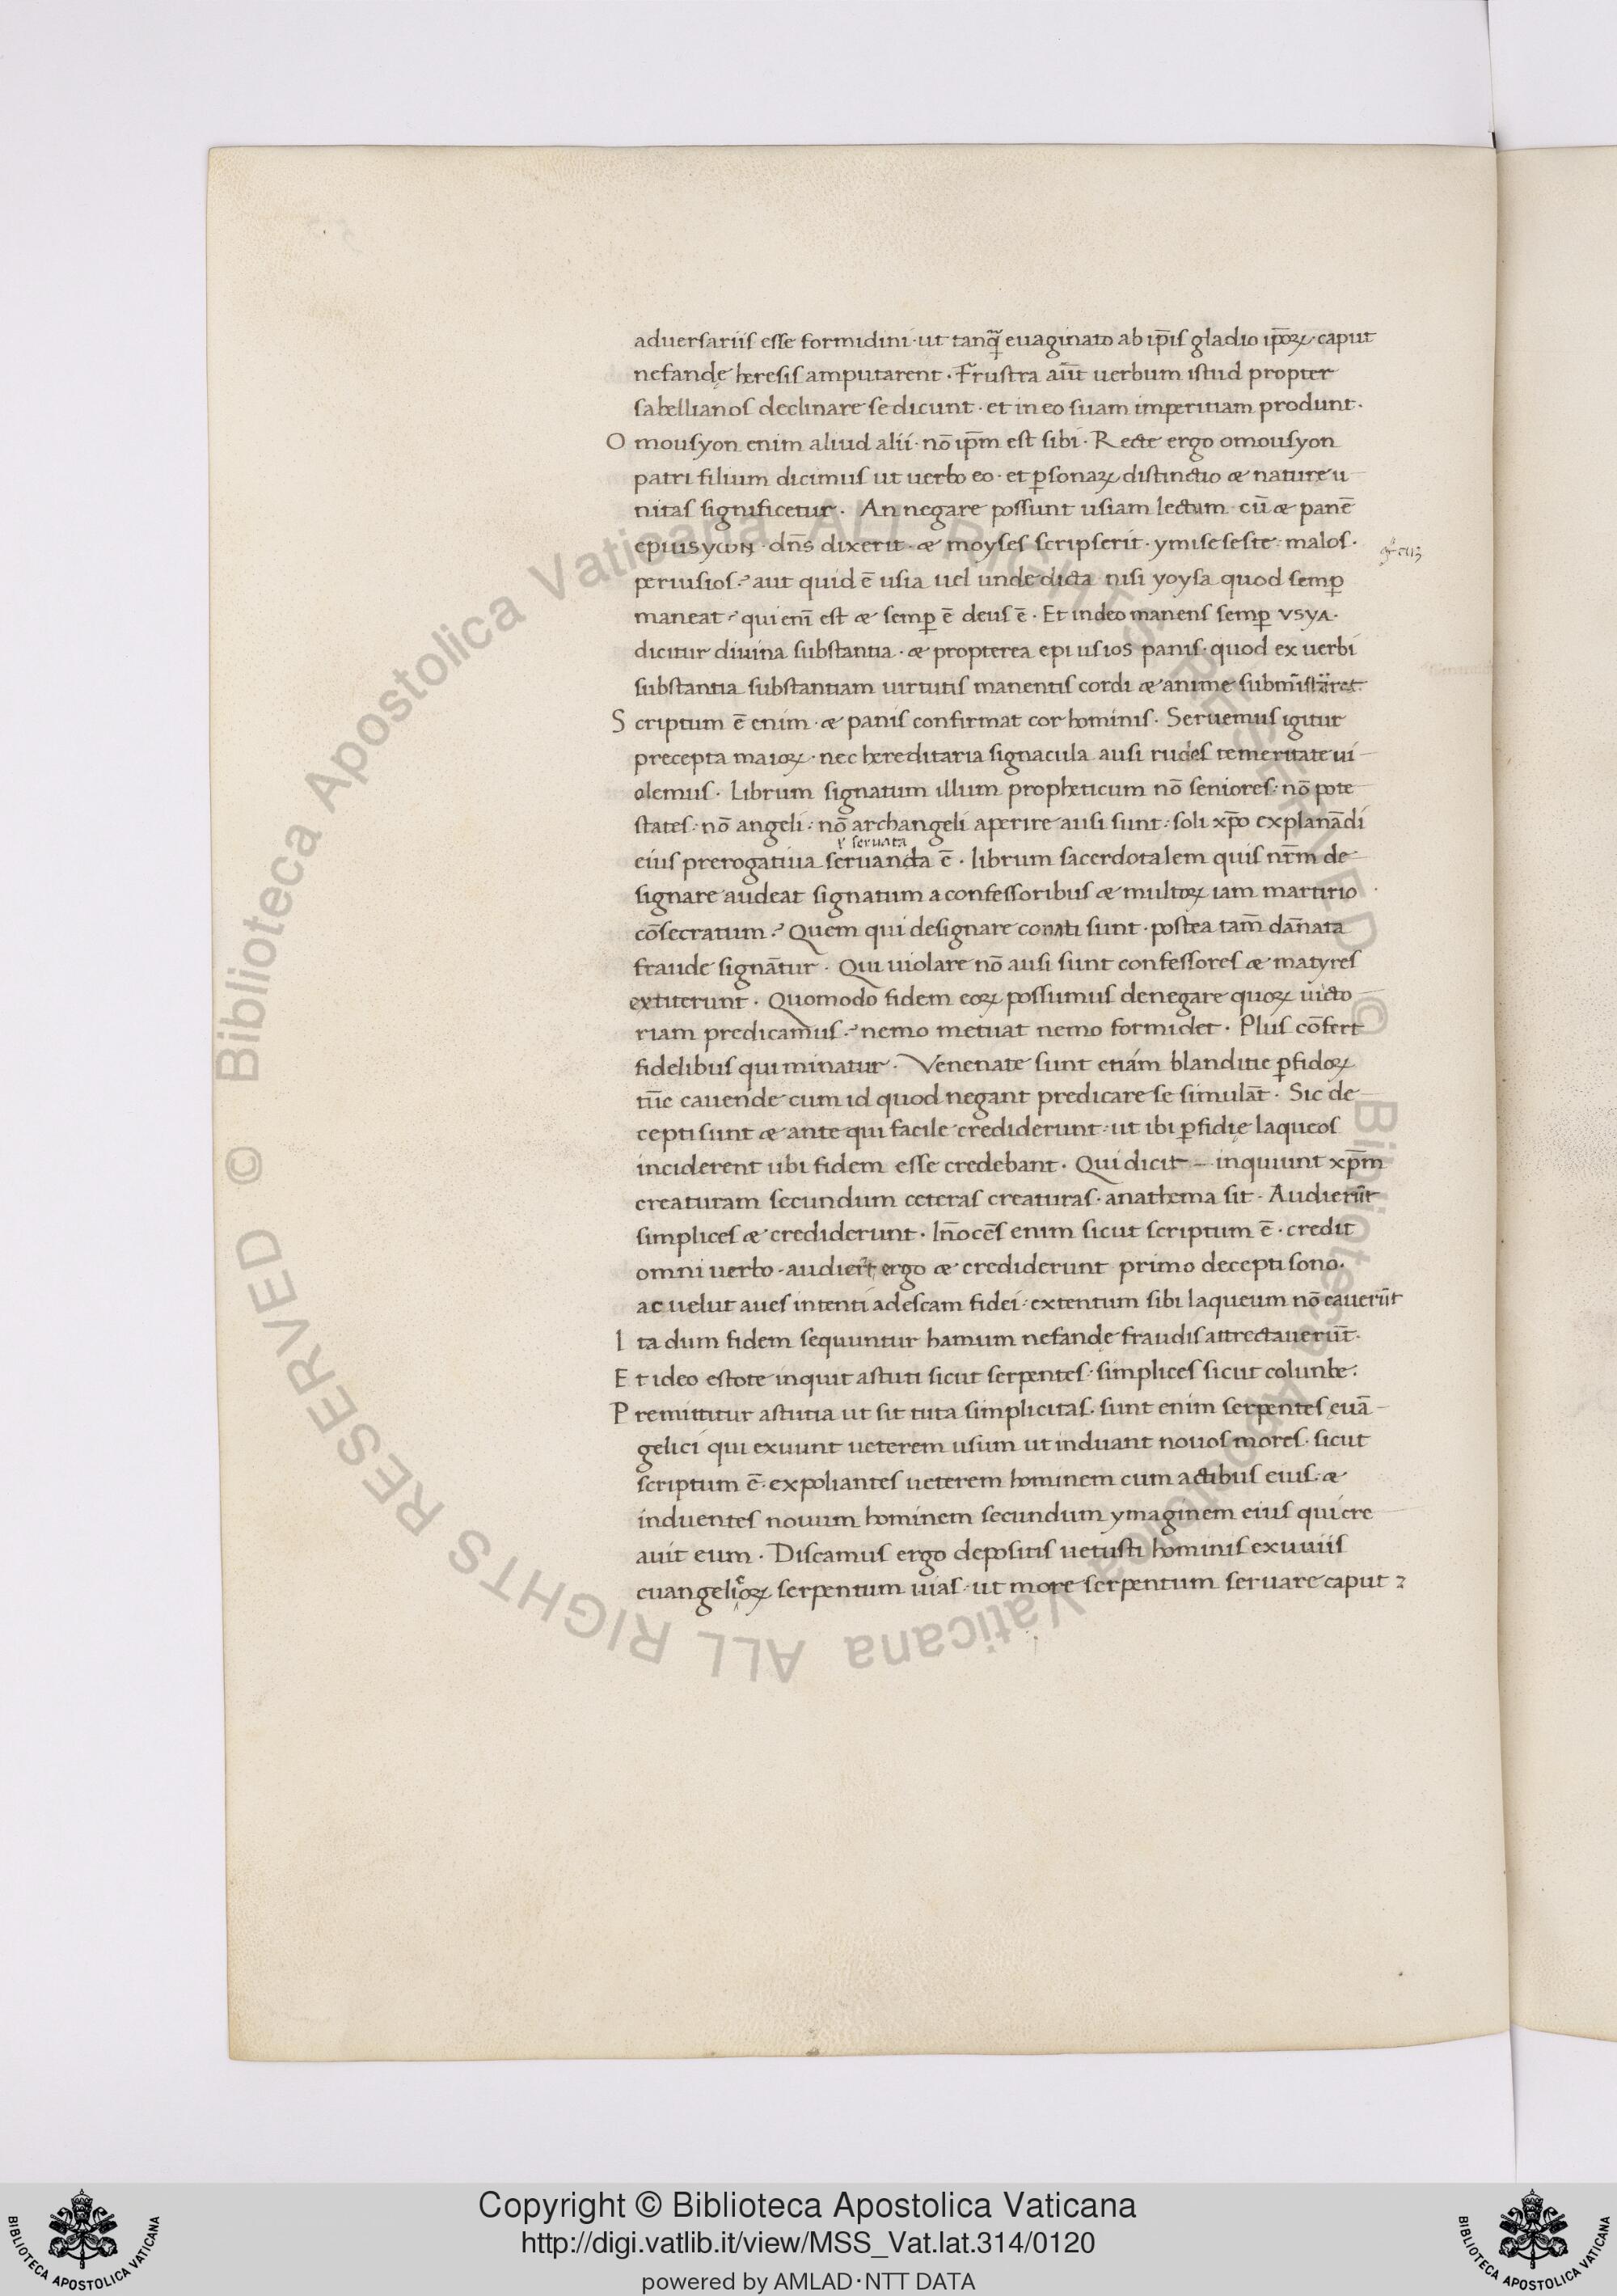 aduersariis esse formidini · ut tanq̃ euaginato ab ip̅is gladio ip̅oꝝ · caput
nefandę heresis amputarent · Frustra aūt uerbum istud propter
sabellianos declinare se dicunt · et in eo suam imperitiam produnt ·
O mousyon enim aliud alii · nō ip̅m est sibi · Recte ergo omousyon
patri filium dicimus ut uerbo eo · et ꝑsonaꝝ distinctio æ nature u
nitas significetur · An negare possunt usiam lectam · cū æ panē
epiusyωn · dn̅s dixerit · æ moyses scripserit · ymis eseste · malos ·
periusios · aut quid ē usia uel unde dicta nisi yoysa quod semꝑ
maneat · qui eni̅ est æ semꝑ ē deus ē · Et indeo manens semꝑ VSYA ·
dicitur diuina substantia · æ propterea epi usios panis · quod ex uerbi
substantia substantiam uirtutis manentis cordi æ anime
S criptum ē enim · æ panis confirmat cor hominis · Seruemus igitur
precepta maioꝝ · nec hereditaria signacula ausi rudes temeritate ui
olemus · Librum signatum illum propheticum nō seniores · nō pote
states · nō angeli · nō archangeli aperire ausi sunt · soli xp̅o explanādi
seruata
eius prerogatiua seruanda ē · librum sacerdotalem quis nr̅m de
signare audeat signatum a confessoribus æ multoꝝ iam martirio
cōsecratum · Quem qui designare conati sunt · postea tam̅ dan̅ata
fraude signātur · Qui uiolare nō ausi sunt confessores æ matyres
extiterunt · Quomodo fidem eoꝝ possumus denegare quoꝝ uicto
riam predicamus · nemo metuat nemo formidet · Plus cōfert
fidelibus qui minatur · Venenate sunt etiám blanditie ꝑfidoꝝ
tūc cauende cum id quod negant predicare se simulāt · Sic de
cepti sunt æ ante qui facile crediderunt · ut ibi ꝑfidię laqueos
inciderent ubi fidem esse credebant · Qui dicit – inquiunt xp̅m
creaturam secundum ceteras creaturas · anathema sit · Audierūt
simplices æ crediderunt · In̅ocēs enim sicut scriptum ē · credit
omni uerbo · audiert̅ ergo æ crediderunt primo decepti sono ·
ac uelut aues intenti ad escam fidei · extentum sibi laqueum nō cauerūt
I ta dum fidem sequuntur hamum nefandę fraudis attrectauerūt ·
E t ideo estote inquit astuti sicut serpentes · simplices sicut colunbe ·
P remittitur astutia ut sit tuta simplicitas · sunt enim serpentes euā
gelici qui exuunt ueterem usum ut induant nouos mores · sicut
scriptum ē · expoliantes ueterem hominem cum actibus eius · æ
induentes nouum hominem secundum ymaginem eius qui cre
auit eum · Discamus ergo depositis uetusti hominis exuuiis
euangelicoꝝ serpentum uias · ut more serpentum seruare caput
© Biblioteca Apostolica Vaticana ALL RIGHTS RESERVED © Biblioteca Apostolica Vaticana ALL RIGHTS RESERVED
Copyright © Biblioteca Apostolica Vaticana
http://digi.vatlib.it/view/MSS_Vat.lat.314/0120
powered by AMLAD·NTT DATA
BIBLIOTECA APOSTOLICA VATICANA
BIBLIOTECA APOSTOLICA VATICANA